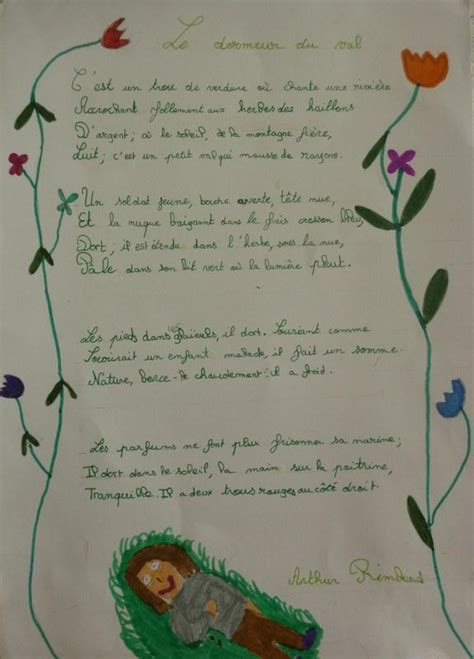 Le dormeur du val
C'est un trou de verdure où chante une rivière
Accrochant follement aux herbes des haillons
D'argent ; où le soleil, de la montagne fière,
Luit ; c'est un petit val qui mousse de rayons.
Un soldat jeune, bouche ouverte, tête nue,
Et la nuque baignant dans le frais cresson bleu,
Dort ; il est étendu dans l'herbe, sous la nue,
Pâle dans son lit vert où la lumière pleut.
Les pieds dans les glaïeuls, il dort. Souriant comme
Sourirait un enfant malade, il fait un somme.
Nature, berce-le chaudement : il a froid.
Les parfums ne font plus frissonner sa narine ;
Il dort dans le soleil, la main sur la poitrine,
Tranquille. Il a deux trous rouges au côté droit.
Arthur Rimbaud